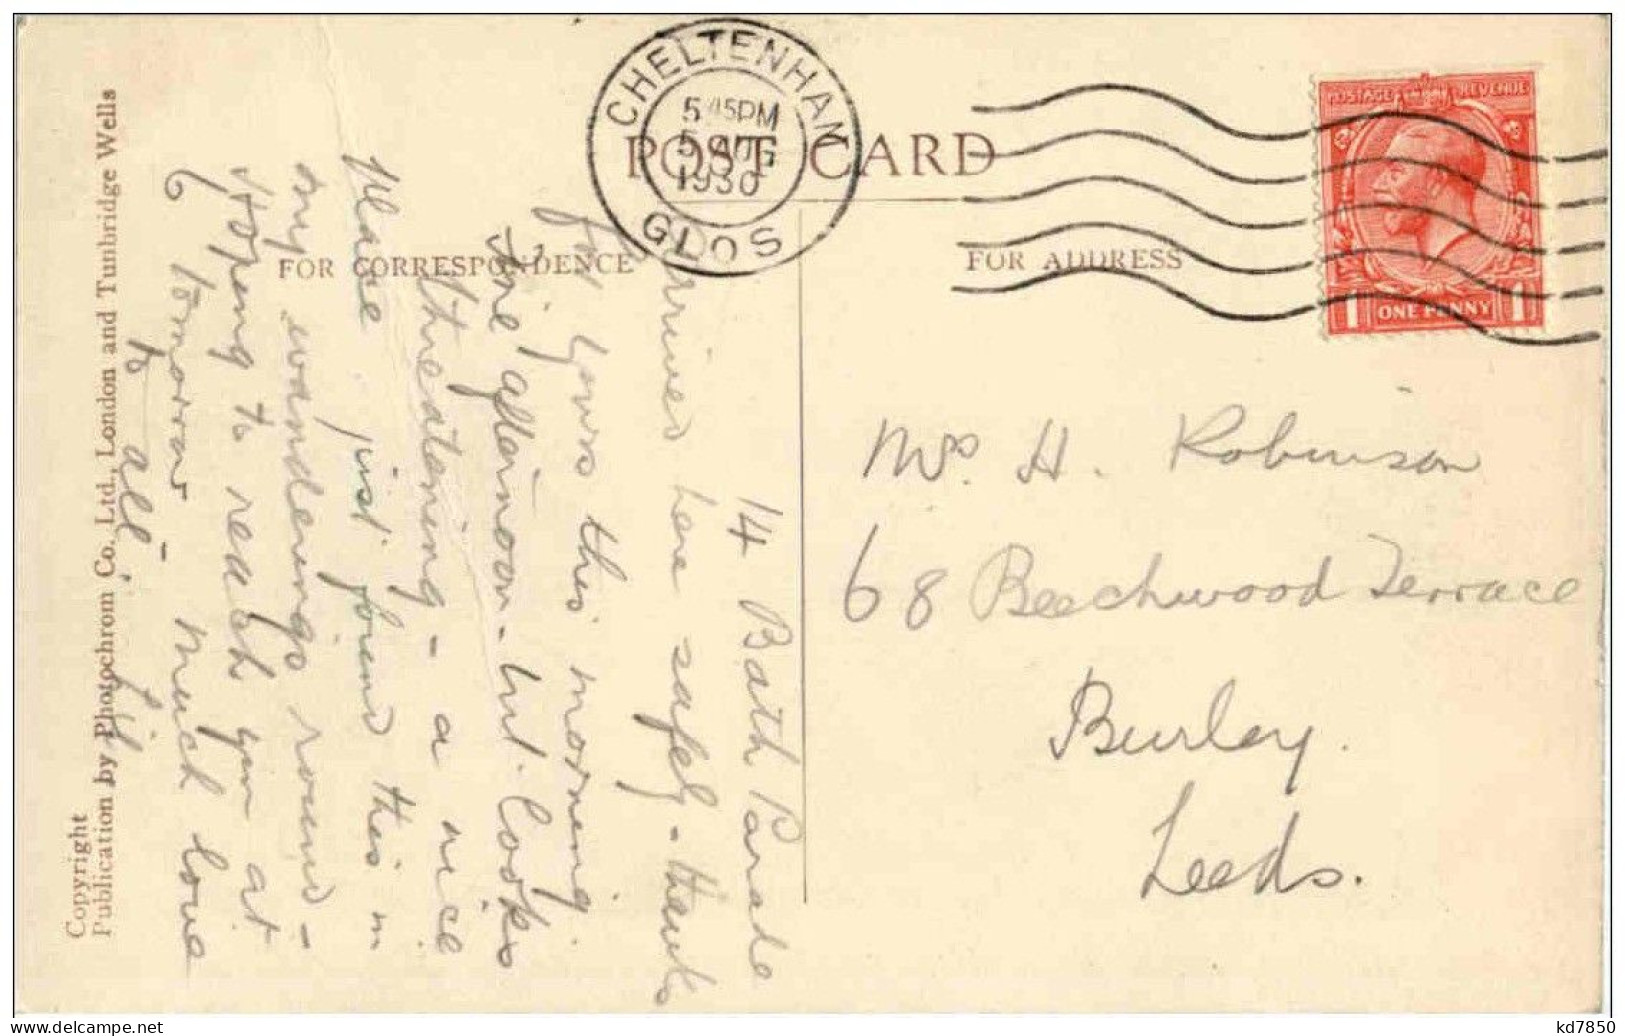 CHELTENHAM
5 45PM
5 AUG
1930
GLOS
POST CARD
POSTAGE REVENUE
1 ONE PENNY 1
FOR CORRESPONDENCE
FOR ADDRESS
14 Bath Parade
Arrived here safely - thanks
for yours this morning
Fine afternoon - but looks
threatening - a nice
place just found this in
my wanderings round -
Hoping to reach you at
6 tomorrow - much love
to all.
Mrs. H. Robinson
68 Beechwood Terrace
Burley.
Leeds.
Copyright
Publication by Photochrom Co., Ltd., London and Tunbridge Wells
kd7850